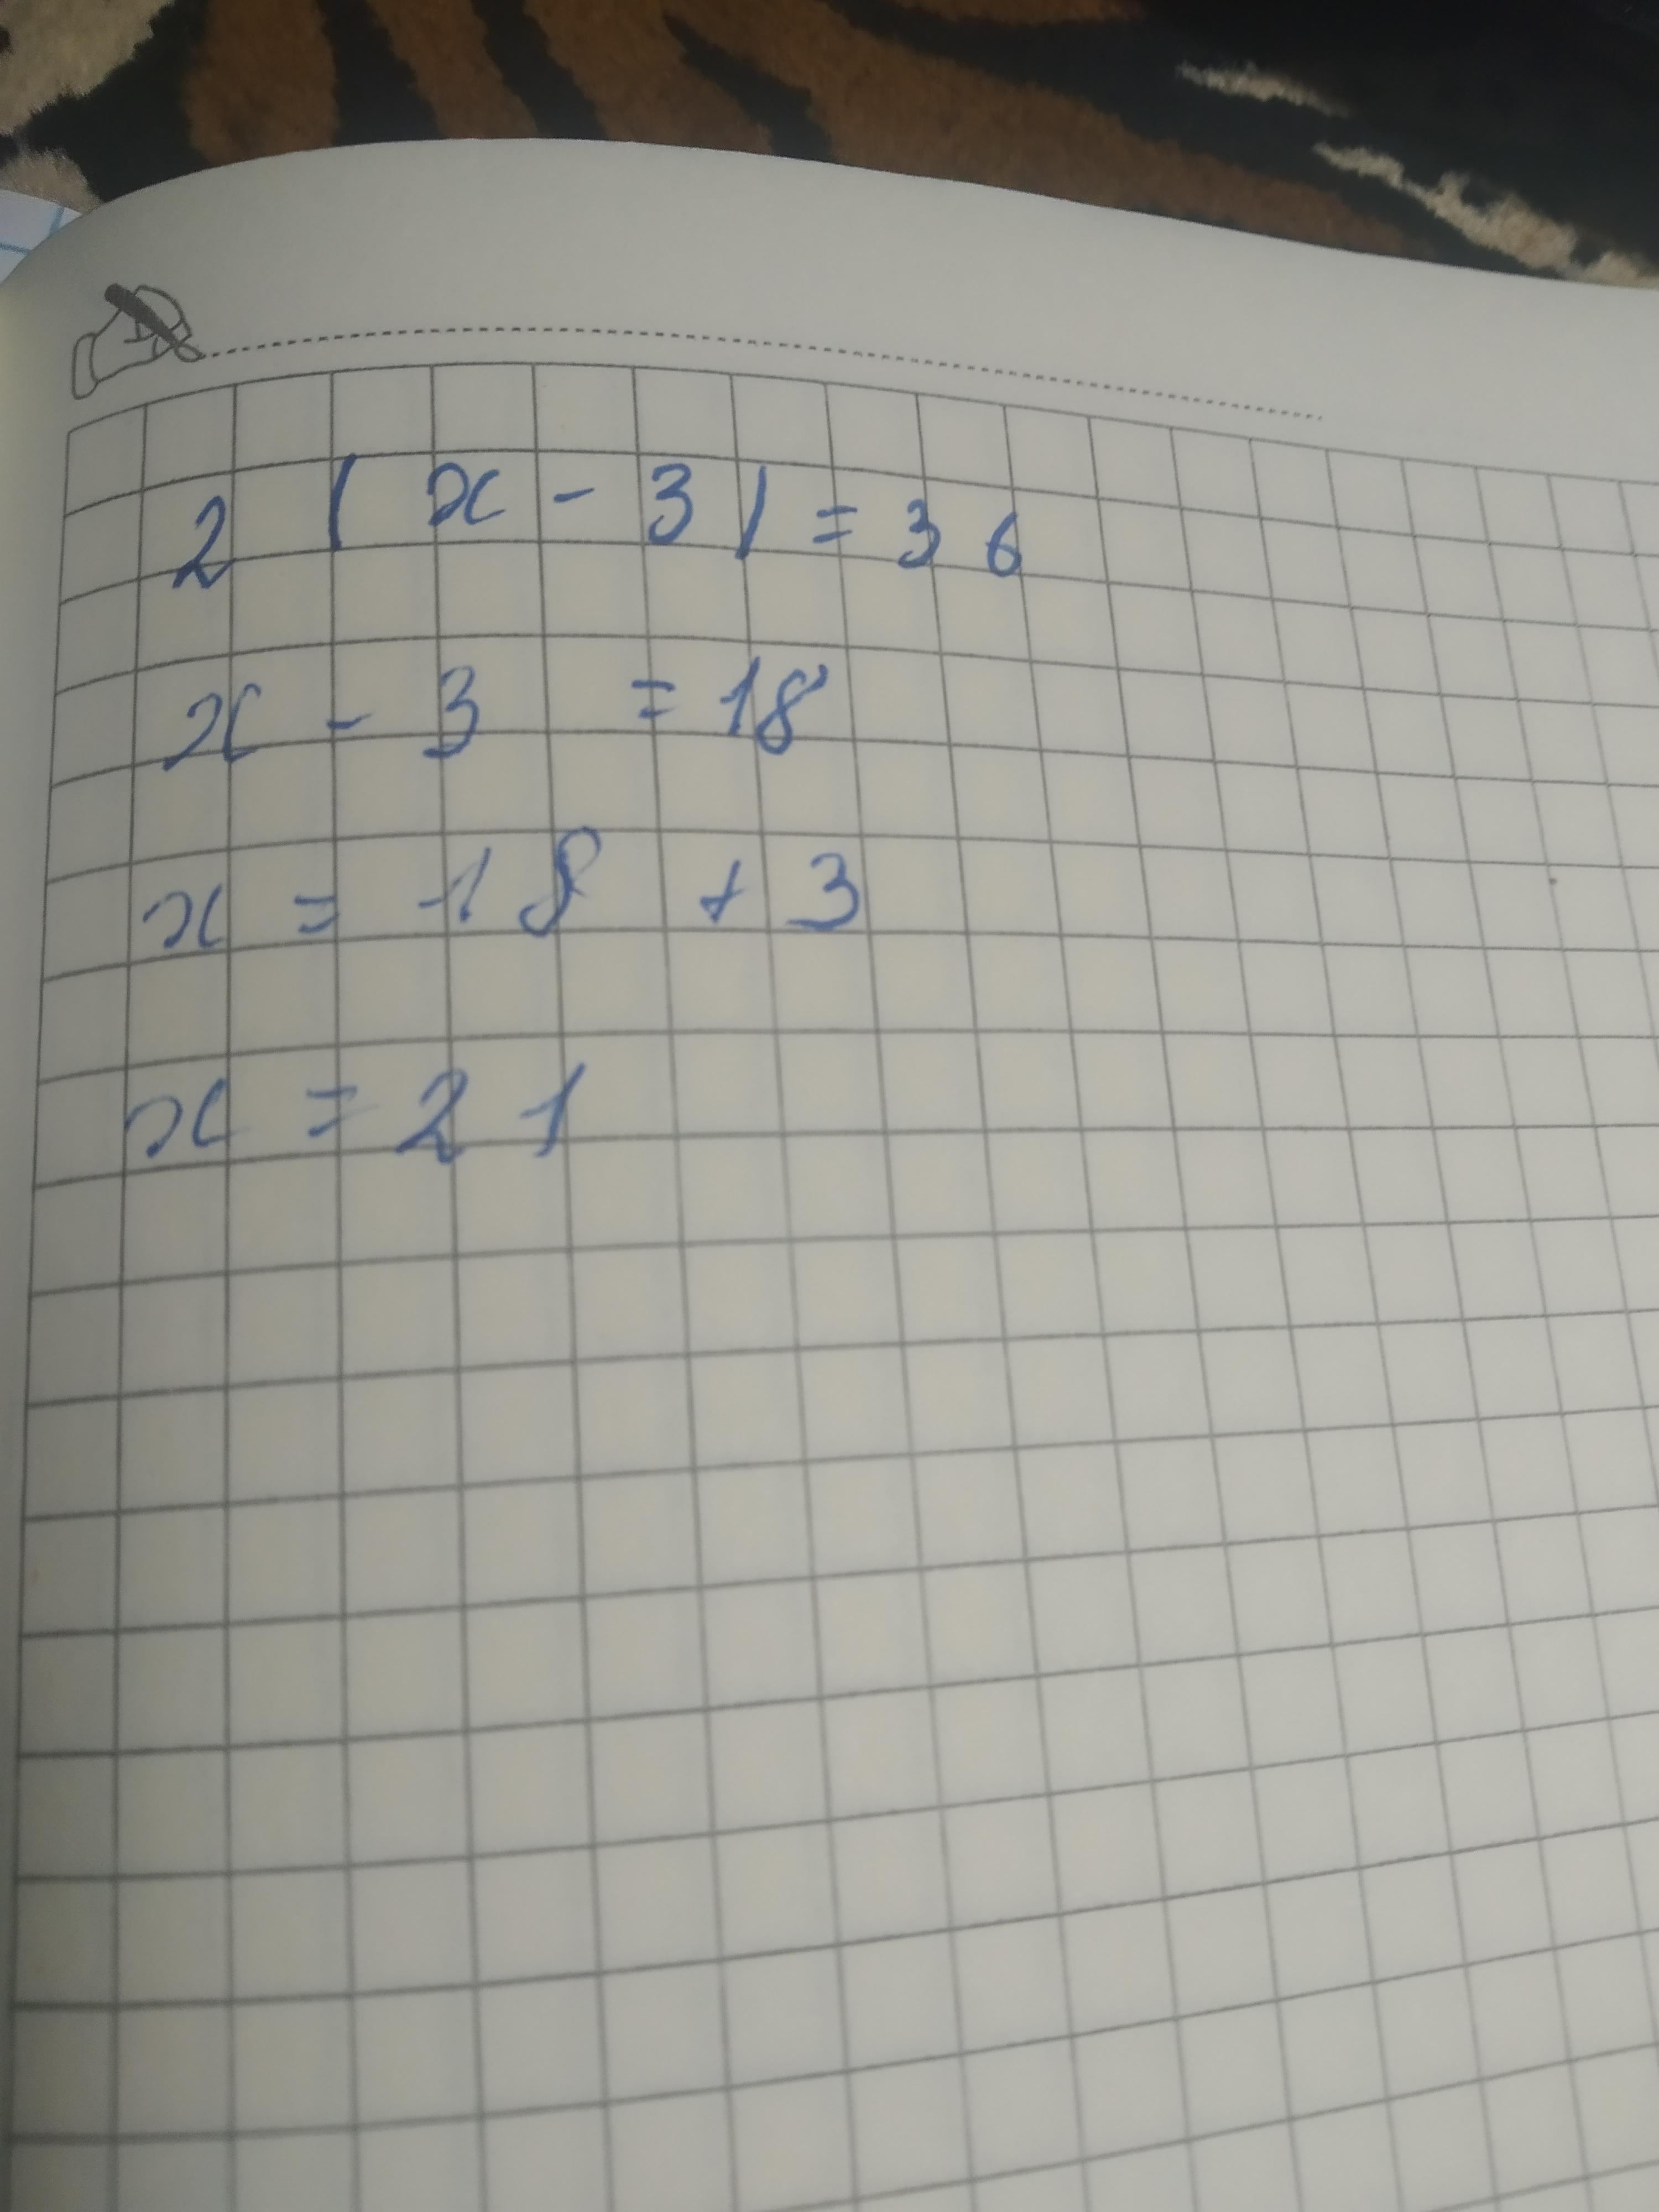 2 ( x - 3 ) = 36
x - 3 = 18
x = 18 + 3
x = 21